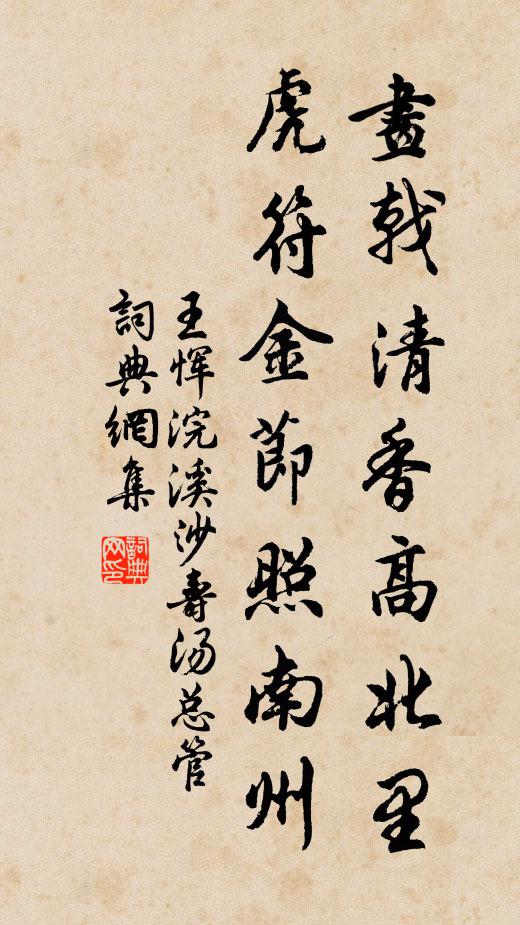 畫戟清香高北里
虎符金節照南州
王恽浣溪沙壽汤总管
詞典網集
詞典网印